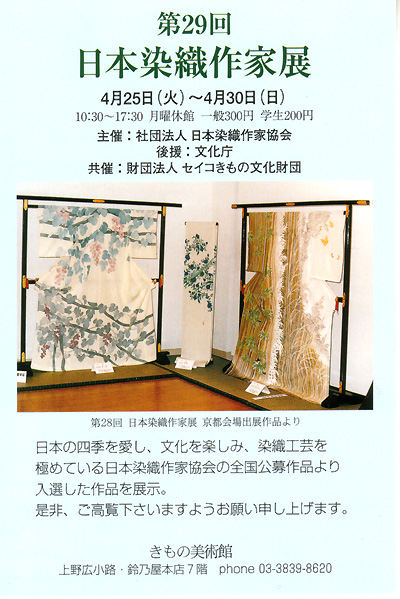 第29回
日本染織作家展
4月25日(火)～4月30日(日)
10:30～17:30 月曜休館 一般300円 学生200円
主催：社団法人 日本染織作家協会
後援：文化庁
共催：財団法人 セイコきもの文化財団
第28回 日本染織作家展 京都会場出展作品より
日本の四季を愛し、文化を楽しみ、染織工芸を
極めている日本染織作家協会の全国公募作品より
入選した作品を展示。
是非、ご高覧下さいますようお願い申し上げます。
きもの美術館
上野広小路・鈴乃屋本店7階 phone 03-3839-8620